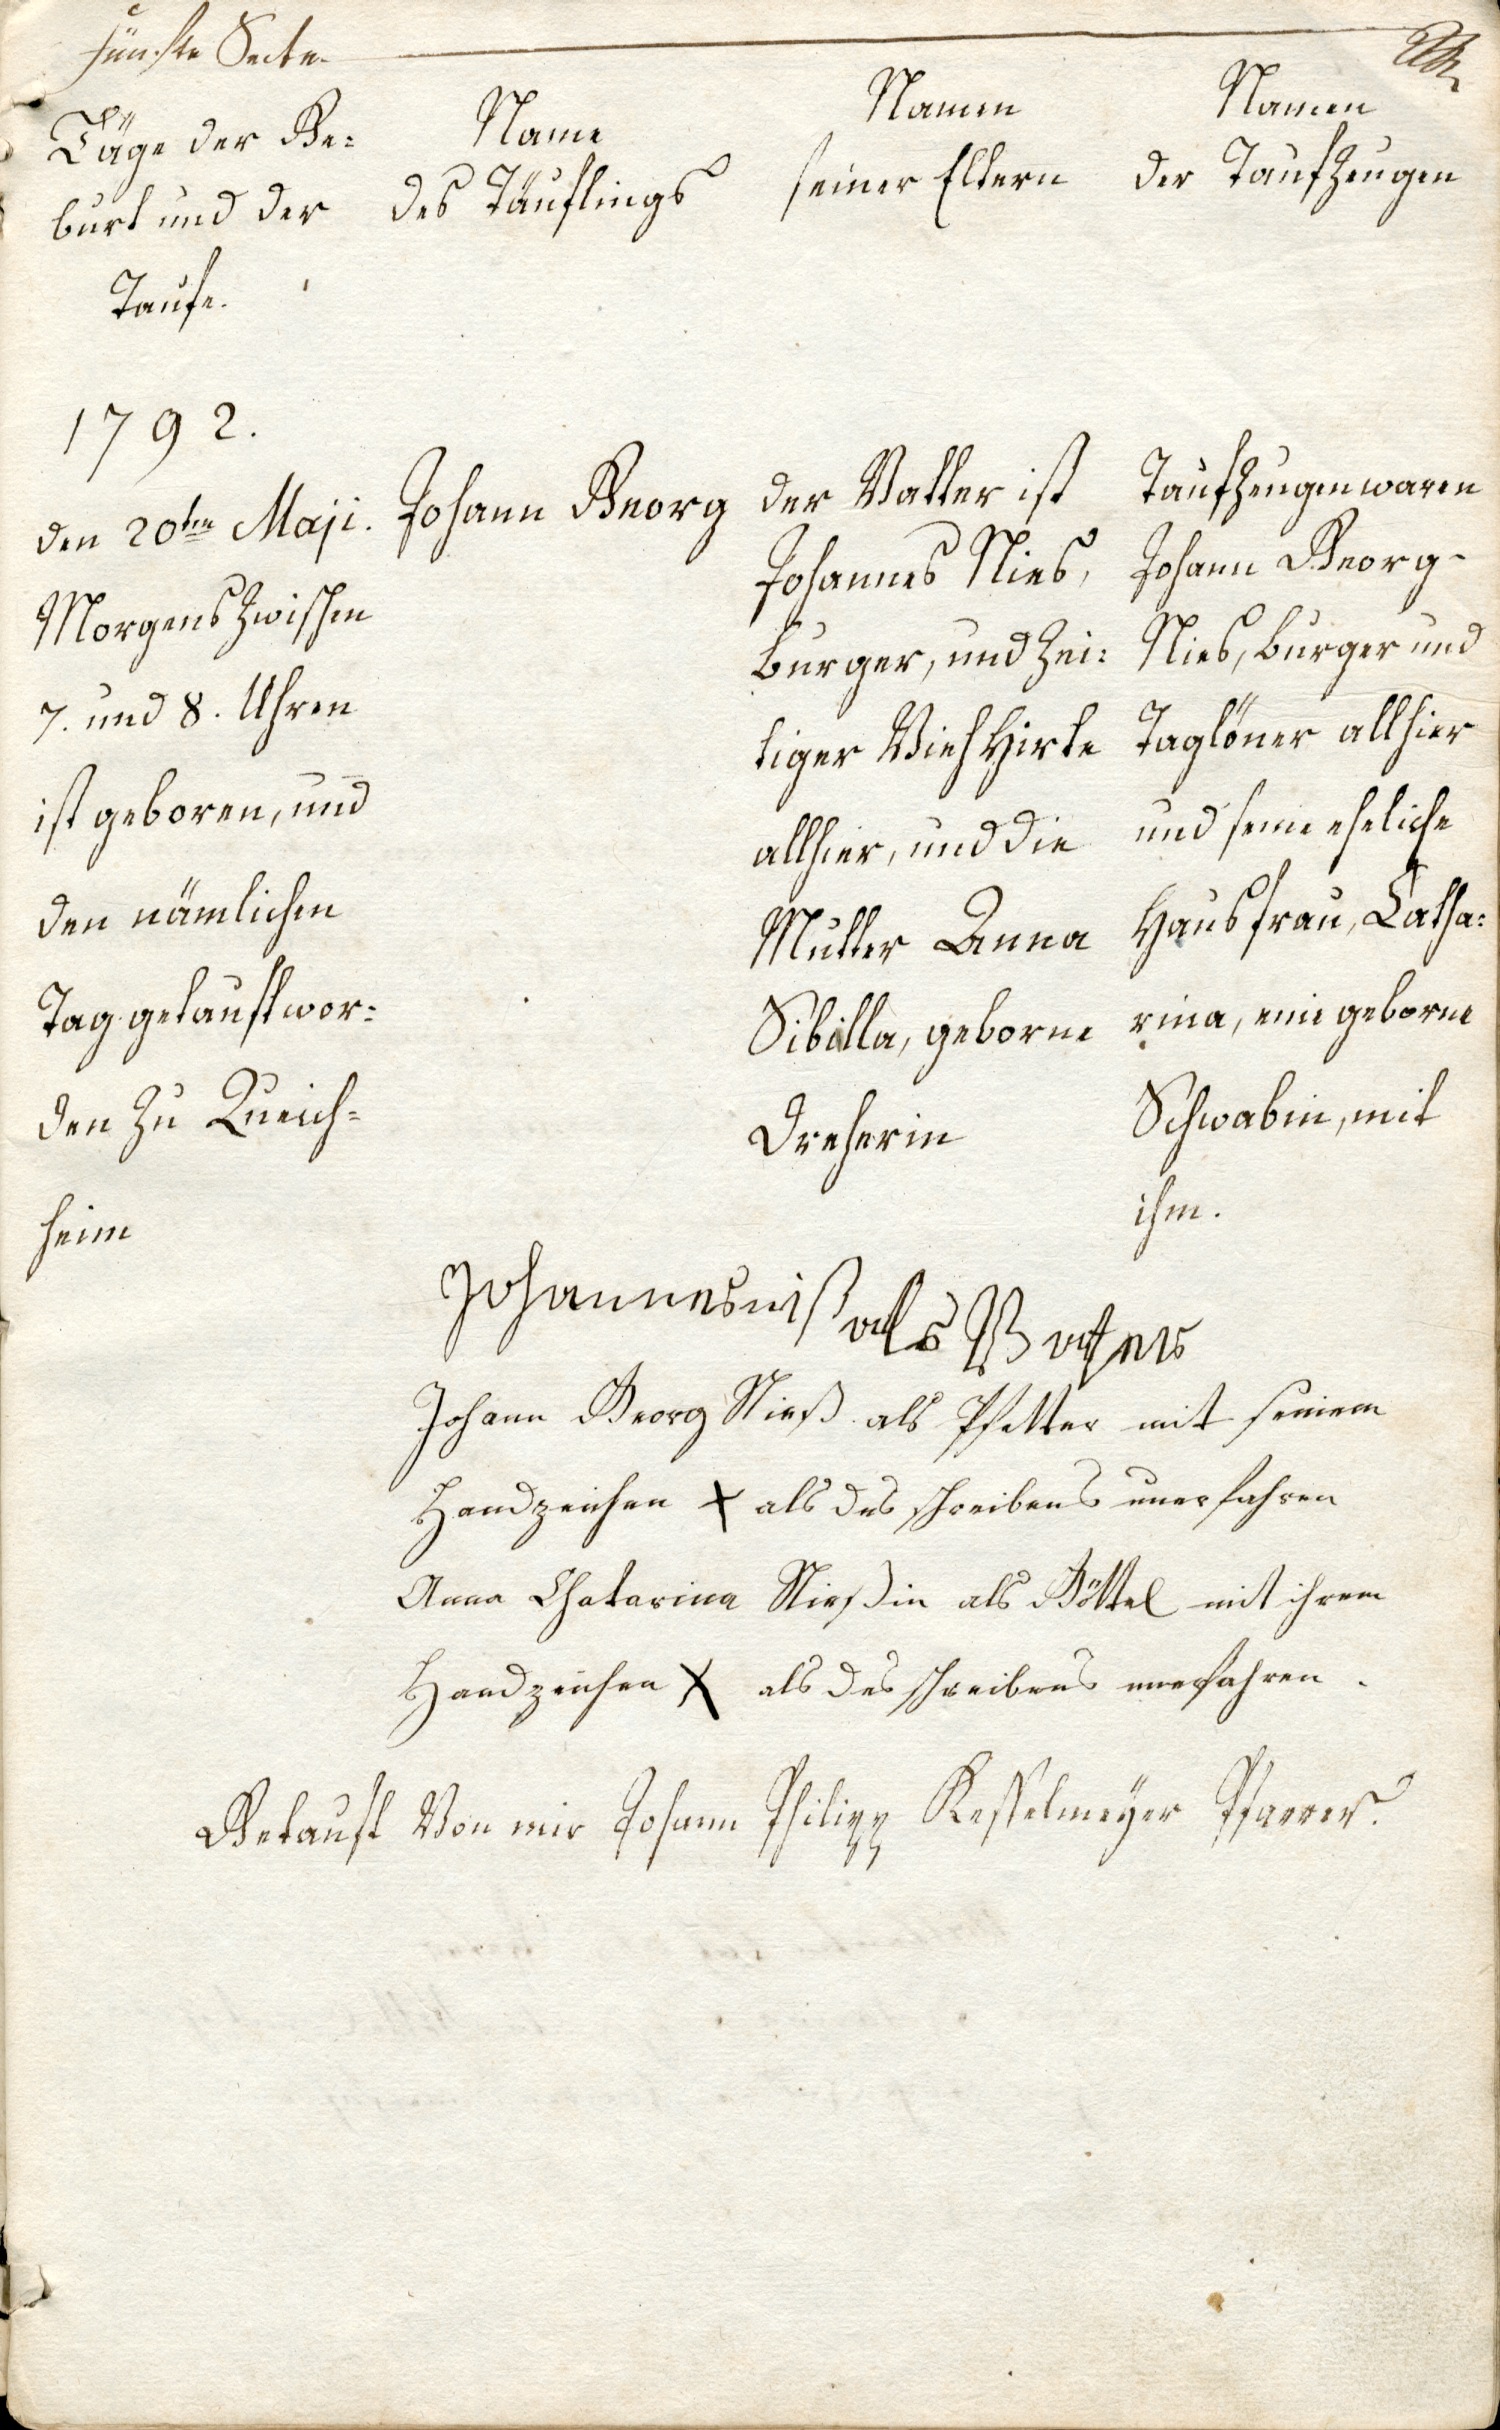 fünfte Seite
Täge der Ge=
burt und der
Taufe.
Name
des Täuflings
Namen
seiner Eltern
Namen
der Taufzeugen
1792.
den 20ten Maji.
Morgens zwischen
7. und 8. Uhren
ist geboren, und
den nämlichen
Tag getauft wor=
den zu Queich=
heim
Johann Georg
der Vatter ist
Johannes Nies,
burger, und zei=
tiger Vieh Hirte
allhier, und die
Mutter Anna
Sibilla, geborne
Dreherin
Taufzeugen waren
Johann Georg
Nies, burger und
Taglöner allhier
und seine eheliche
Hausfrau, Catha=
rina, eine geborne
Schwabin, mit
ihm.
Johannes niß als Vater
Johann Georg Nieß als Pfetter mit seinem
Handzeichen X als des schreibens unerfahren
Anna Chatarina Nießin als Göttel mit ihrem
Handzeichen X als des schreibens unerfahren.
Getauft Von mir Johann Philipp Kesselmeyer Pfarrer.